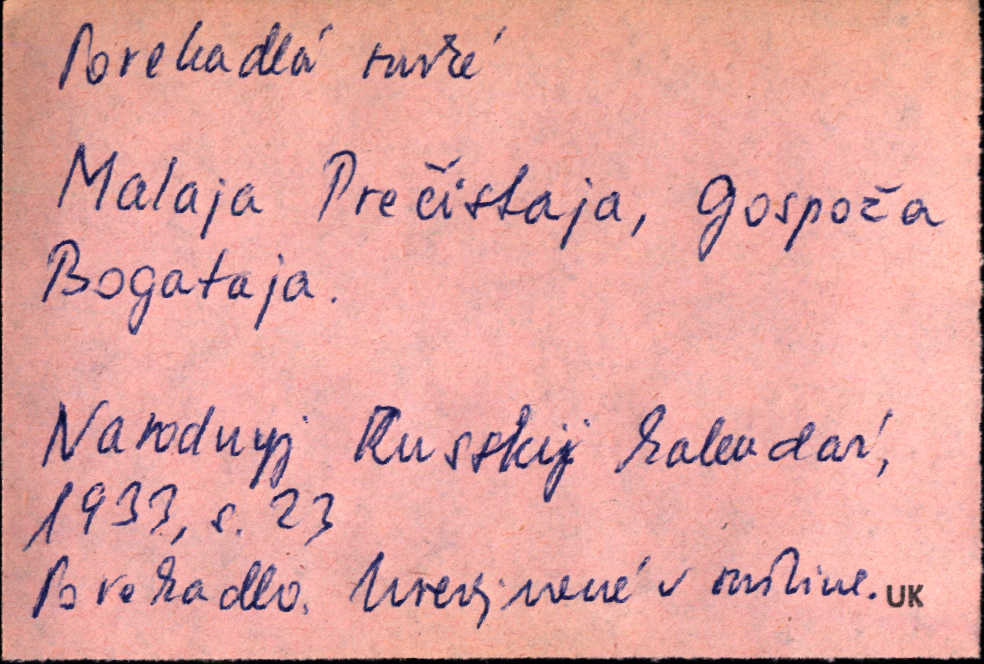 Porekadlá ruské
Malaja Prečistaja, Gospoža
Bogataja.
Narodnyj Russkij kalendar',
1933, s. 23
Porekadlo. Uverejnené v ruštine. UK